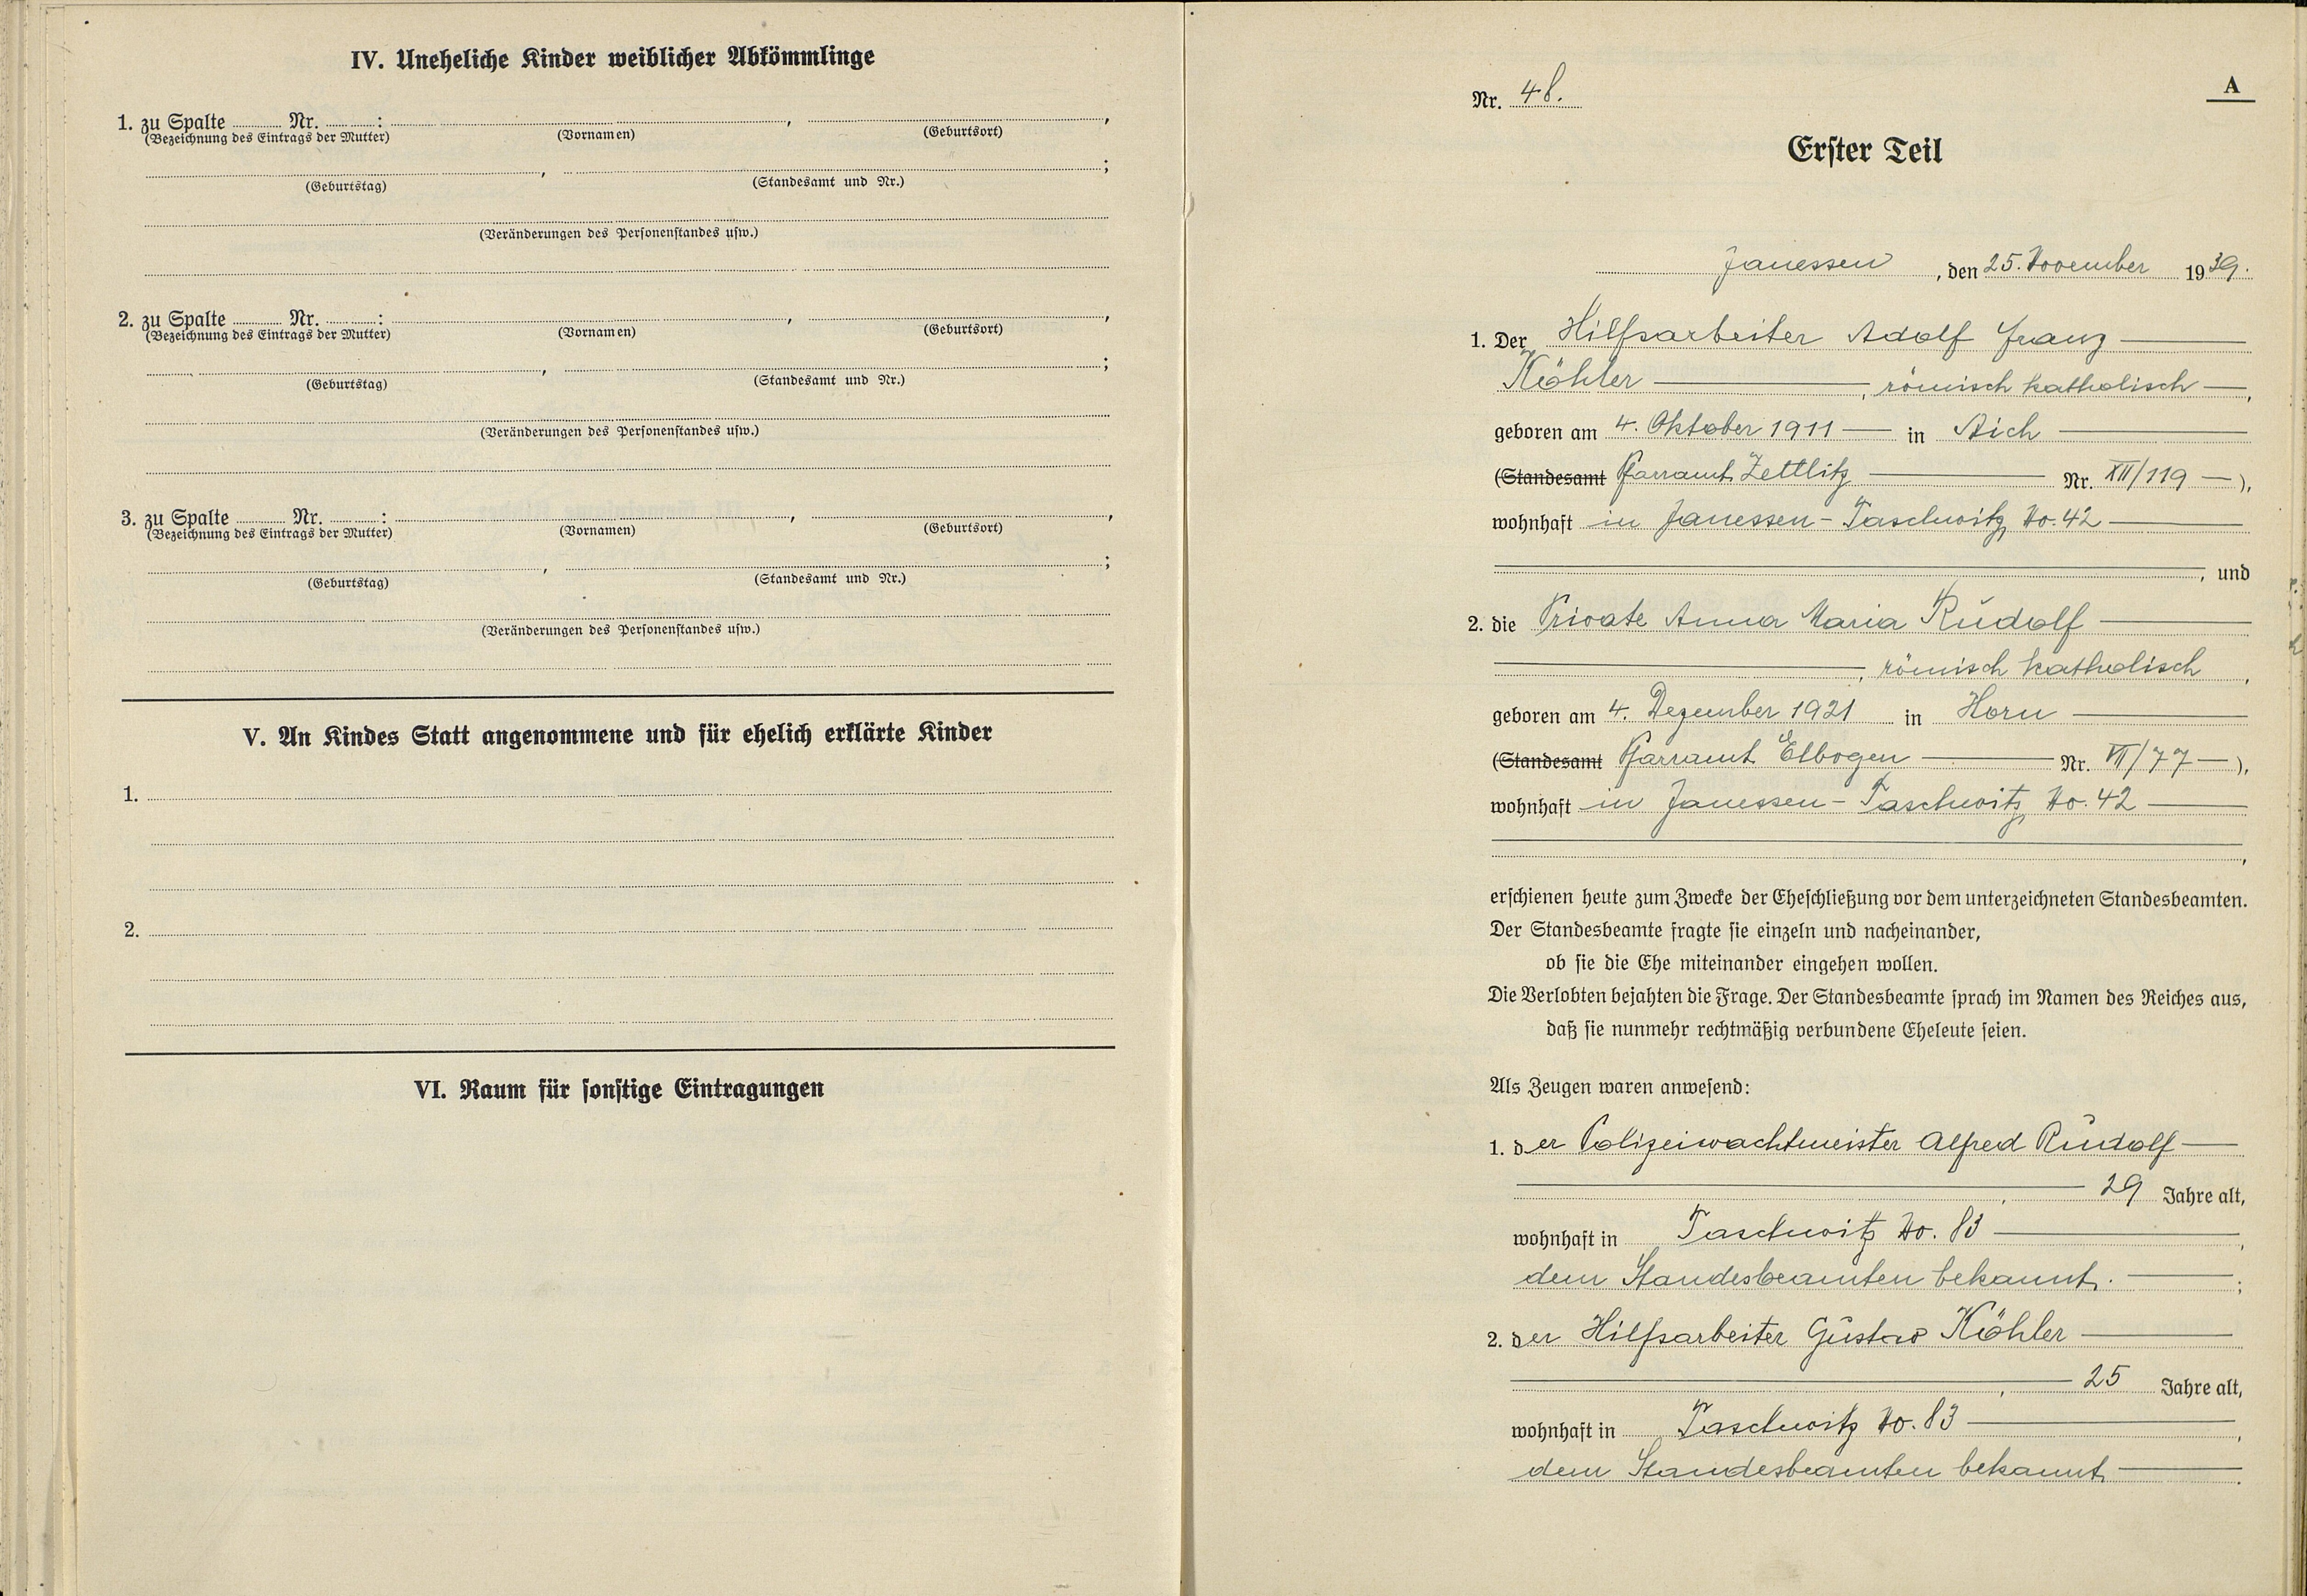 IV. Uneheliche Kinder weiblicher Abkömmlinge
1. zu Spalte Nr. : , ,
(Bezeichnung des Eintrags der Mutter) (Vornamen) (Geburtsort)
, ;
(Geburtstag) (Standesamt und Nr.)
(Veränderungen des Personenstandes usw.)
2. zu Spalte Nr. : , ,
(Bezeichnung des Eintrags der Mutter) (Vornamen) (Geburtsort)
, ;
(Geburtstag) (Standesamt und Nr.)
(Veränderungen des Personenstandes usw.)
3. zu Spalte Nr. : , ,
(Bezeichnung des Eintrags der Mutter) (Vornamen) (Geburtsort)
, ;
(Geburtstag) (Standesamt und Nr.)
(Veränderungen des Personenstandes usw.)
V. An Kindes Statt angenommene und für ehelich erklärte Kinder
1.
2.
VI. Raum für sonstige Eintragungen
A
Nr. 48.
Erster Teil
Janessen, den 25. November 1939.
1. Der Hilfsarbeiter Adolf Franz
Köhler, römisch katholisch,
geboren am 4. Oktober 1911 in Aich
(Standesamt Pfarramt Zettlitz Nr. XII/119),
wohnhaft in Janessen-Taschwitz No. 42
, und
2. die Private Anna Maria Rudolf
, römisch katholisch,
geboren am 4. Dezember 1921 in Horn
(Standesamt Pfarramt Elbogen Nr. VII/77),
wohnhaft in Janessen-Taschwitz No. 42
,
erschienen heute zum Zwecke der Eheschließung vor dem unterzeichneten Standesbeamten.
Der Standesbeamte fragte sie einzeln und nacheinander,
ob sie die Ehe miteinander eingehen wollen.
Die Verlobten bejahten die Frage. Der Standesbeamte sprach im Namen des Reiches aus,
daß sie nunmehr rechtmäßig verbundene Eheleute seien.
Als Zeugen waren anwesend:
1. der Polizeiwachtmeister Alfred Rudolf
, 29 Jahre alt,
wohnhaft in Taschwitz No. 83,
dem Standesbeamten bekannt. ;
2. der Hilfsarbeiter Gustav Köhler
, 25 Jahre alt,
wohnhaft in Taschwitz No. 83,
dem Standesbeamten bekannt.